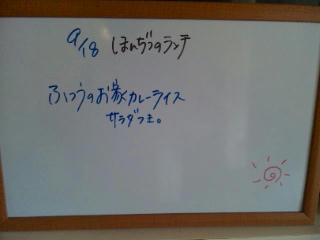 9/18 ほんじつのランチ
ふつうのお家カレーライス
サラダつき。